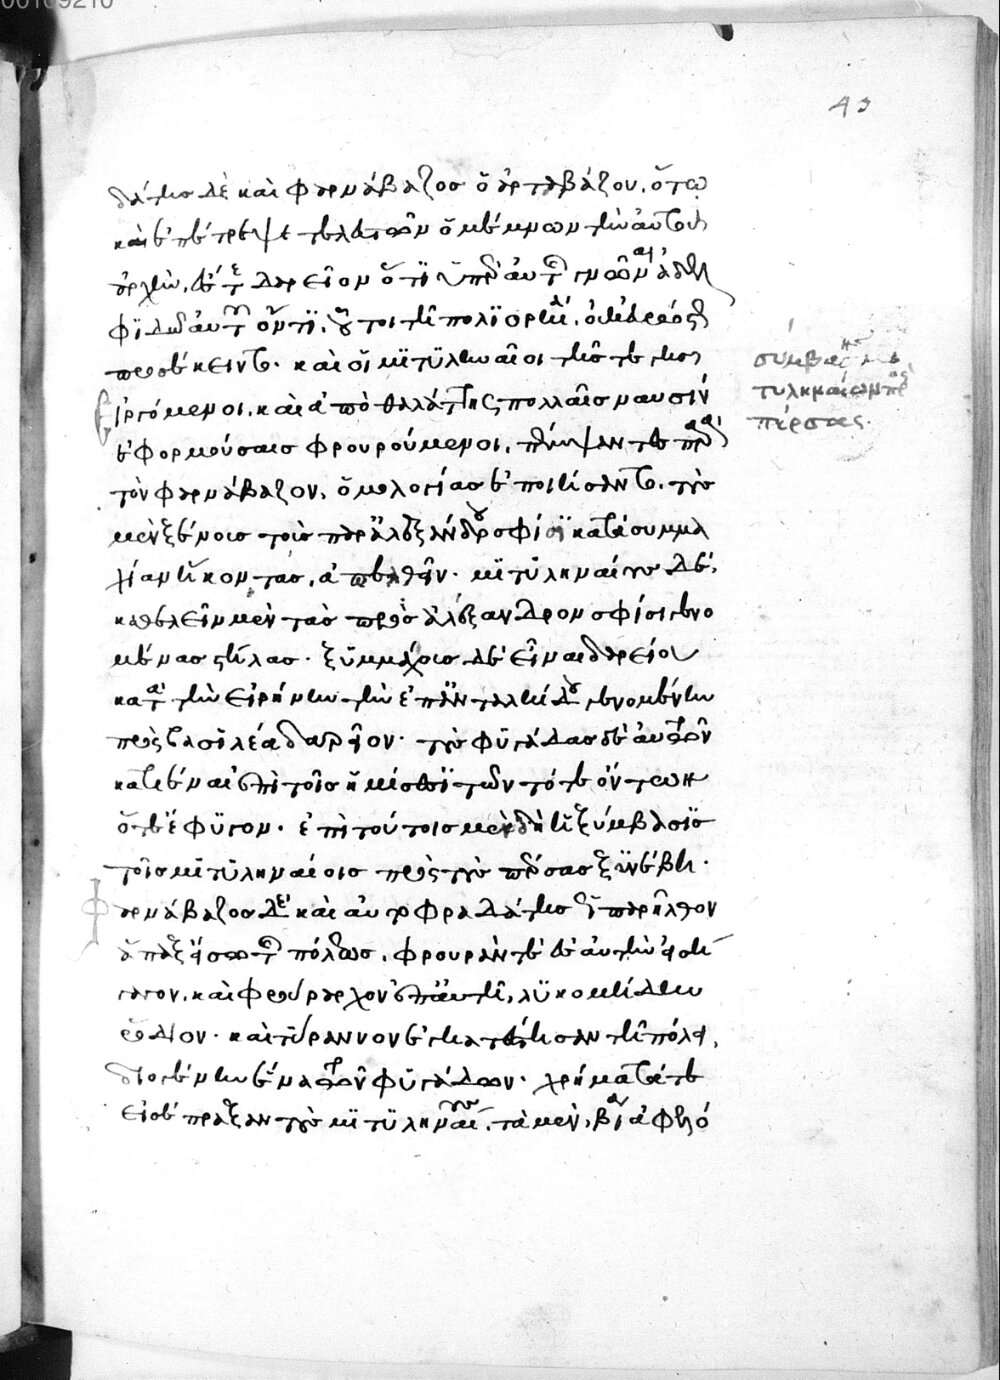 00109210
43
δάτης δὲ καὶ φαρνάβαζος ὁ ἀρταβάζου, ὅτω
καὶ ἐπέτρεψε τελευτῶν ὁ μέμνων τὴν αὑτοῦ
ἀρχὴν, ἔς τε δαρεῖον ὅτι ὑπὲρ αὐτῆς γνῶναι ἀδελ
φιδῷ αὐτοῦ ὄντι, οὗτοι τῆ πολιορκίᾳ οὐκ ἀρρώστως
προσέκειντο. καὶ οἱ μιτυληναῖοι τῆς τε γῆς
εἰργόμενοι, καὶ ἀπὸ θαλάττης πολλαῖς ναυσὶν
ἐφορμούσαις φρουρούμενοι, πέμψαντες παρὰ
τὸν φαρνάβαζον, ὁμολογίας ἐποιήσαντο, τοὺς
μὲν ξένους τοὺς παρ' ἀλεξάνδρου σφίσι κατὰ συμμα
χίαν ἥκοντας, ἀπελθεῖν. μιτυληναίους δὲ,
καθελεῖν μὲν τὰς πρὸς ἀλέξανδρον σφίσι γενο
μένας στήλας. ξυμμάχους δὲ εἶναι δαρείου
κατὰ τὴν εἰρήνην τὴν ἐπ' ἀνταλκίδου γενομένην
πρὸς βασιλέα δαρεῖον. τοὺς φυγάδας δὲ αὐτῶν
κατιέναι ἐπὶ τοῖς ἡμίσεσι τῶν τότε ὄντων
ὅτε ἔφυγον. ἐπὶ τούτοις μὲν δὴ ἡ ξύμβασις
τοῖς μιτυληναίοις πρὸς τοὺς πέρσας ξυνέβη.
φαρνάβαζος δὲ καὶ αὐτοφραδάτης ὡς παρῆλθον
ἅπαξ εἴσω τῆς πόλεως, φρουράν τε ἐς αὐτὴν εἰσή
γαγον, καὶ φρούραρχον ἐπ' αὐτῆ, λυκομήδην
ῥόδιον. καὶ τύραννον ἐγκατέστησαν τῆ πόλει,
διογένην ἕνα τῶν φυγάδων. χρήματά τε
εἰσέπραξαν τοὺς μιτυληναίους, τὰ μὲν, βίᾳ ἀφελό
σύμβασις μι
τυληναίων πρὸς
πέρσας.